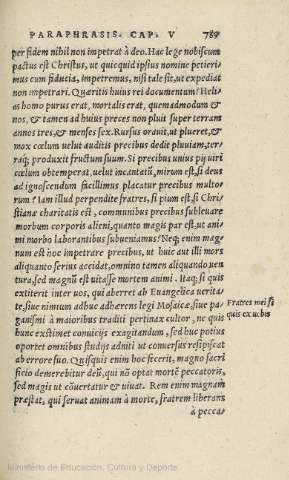 PARAPHRASIS. CAP. V 789
per fidem nihil non impetrat à deo. Hac lege nobiscum
pactus est Christus, ut quicquid ipsius nomine petieri-
mus cum fiducia, impetremus, nisi tale sit, ut expediat
non impetrari. Quæritis huius rei documentum? Heli-
as homo purus erat, mortalis erat, quemadmodum &
nos, & tamen ad huius preces non pluit super terram
annos tres, & menses sex. Rursus orauit, ut plueret, &
mox cœlum uelut auditis precibus dedit pluuiam, ter-
raq; produxit fructum suum. Si precibus unius pij uiri
cœlum obtemperat, uelut incantatũ, mirum est, si deus
ad ignoscendum facillimus placatur precibus multo-
rum? Iam illud perpendite fratres, si pium est, si Chri
stianæ charitatis est, communibus precibus subleuare
morbum corporis alieni, quanto magis par est, ut ani
mi morbo laborantibus subueniamus? Neq; enim mag-
num est hoc impetrare precibus, ut huic aut illi mors
aliquanto serius accidat, omnino tamen aliquando uen
tura, sed magnũ est uitasse mortem animi. Itaq; si quis
extiterit inter uos, qui aberret ab Euangelica uerita-
te, siue nimium adhuc adhærens legi Mosaicæ, siue pa-
ganismi à maioribus traditi pertinax cultor, ne quis
hunc existimet conuicijs exagitandum, sed huc potius
oportet omnibus studijs adniti ut conuersus resipiscat
ab errore suo. Quisquis enim hoc fecerit, magno sacri
ficio demerebitur deũ, qui nõ optat mortẽ peccatoris,
sed magis ut cõuertatur & uiuat. Rem enim magnam
præstat, qui seruat animam à morte, fratrem liberans
à pecca-
Fratres mei si
quis ex uobis
Ministerio de Educación, Cultura y Deporte